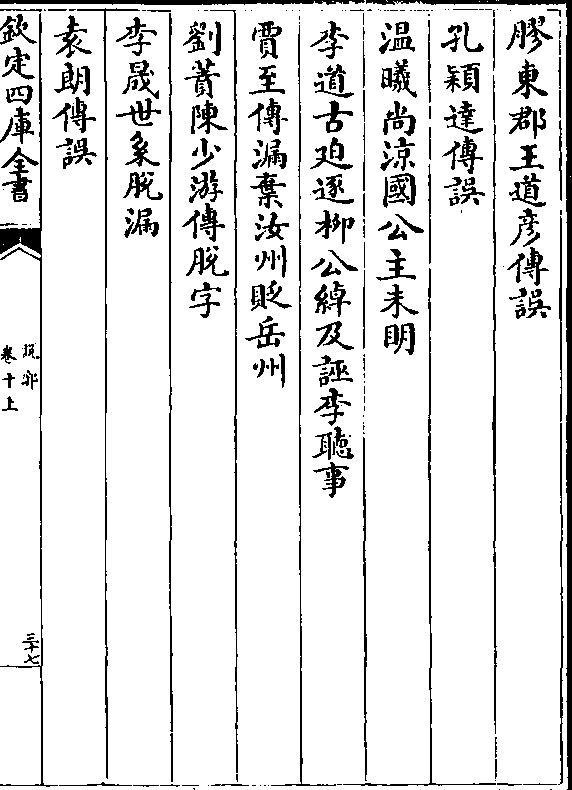 膠東郡王道彥傳誤
孔穎達傳誤
温曦尚涼國公主未明
李道古廹逐栁公綽及誣李聽事
賈至傳漏棄汝州貶岳州
劉蕡陳少游傳脫字
李晟世系脫漏
袁朗傳誤
欽定四庫全書
說郛
卷十上
三十七